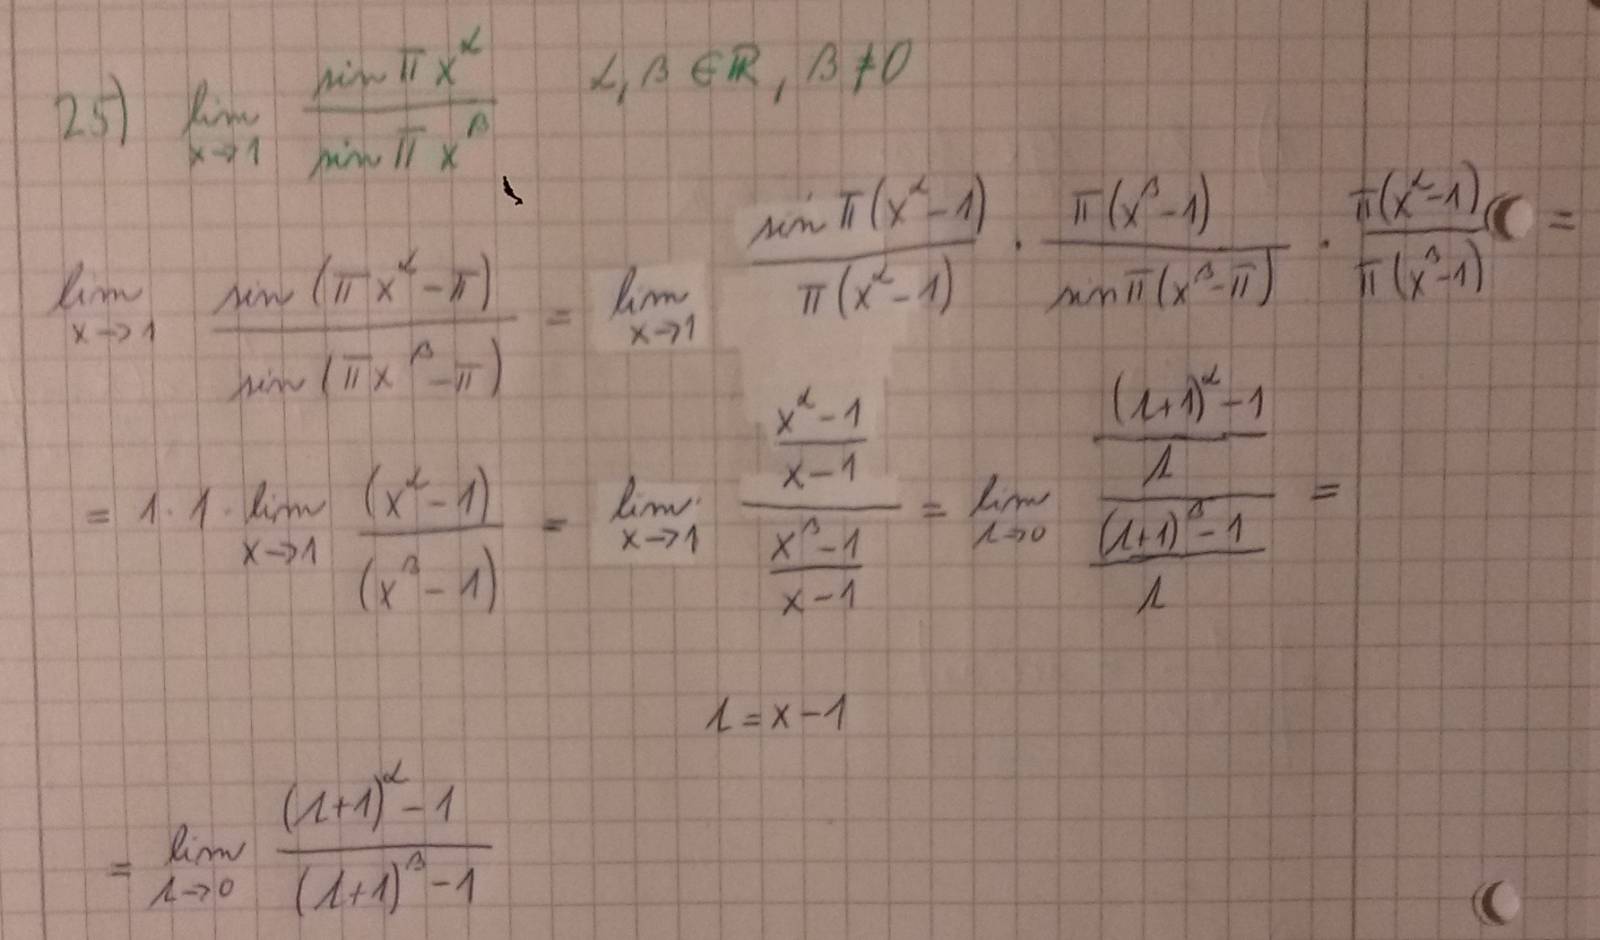 25) lim x→1 sin π x^α / sin π x^β α, β ∈ ℝ, β ≠ 0
lim x→1 sin (π x^α - π) / sin (π x^β - π) = lim x→1 sin π (x^α - 1) / π (x^α - 1) · π (x^β - 1) / sin π (x^β - π) · π (x^α - 1) / π (x^β - 1) =
= 1 · 1 · lim x→1 (x^α - 1) / (x^β - 1) = lim x→1 ((x^α - 1) / (x - 1)) / ((x^β - 1) / (x - 1)) = lim λ→0 (((λ+1)^α - 1) / λ) / (((λ+1)^β - 1) / λ) =
λ = x - 1
= lim λ→0 ((λ+1)^α - 1) / ((λ+1)^β - 1)